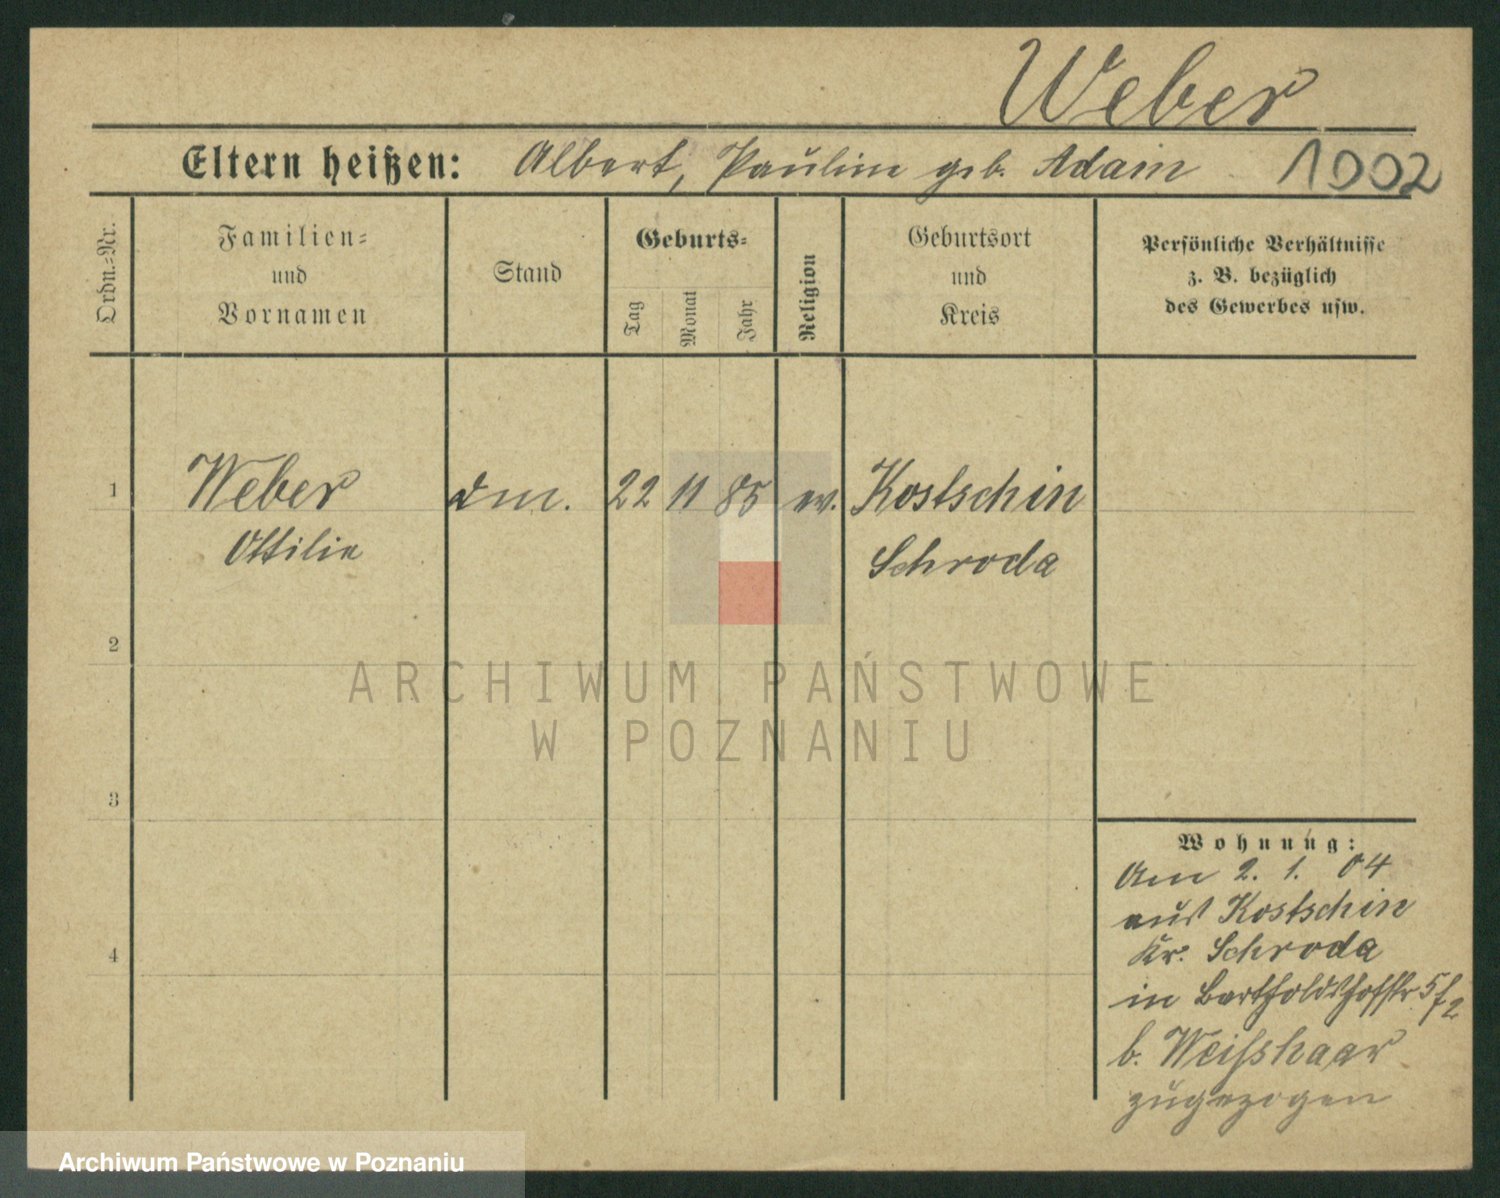 Weber
Eltern heißen: Albert, Pauline geb. Adam 1002
Ordn.=Nr.
Familien=
und
Vornamen
Stand
Geburts=
Tag
Monat
Jahr
Religion
Geburtsort
und
Kreis
Persönliche Verhältnisse
z. B. bezüglich
des Gewerbes usw.
1 Weber dm. 22 11 85 ev. Kostschin
Ottilie Schroda
2
ARCHIWUM PAŃSTWOWE
W POZNANIU
3
4
Wohnung:
Am 2. 1. 04
aus Kostschin
Kr. Schroda
in Bartholdshofstr 5/2
b. Weisshaar
zugezogen
Archiwum Państwowe w Poznaniu